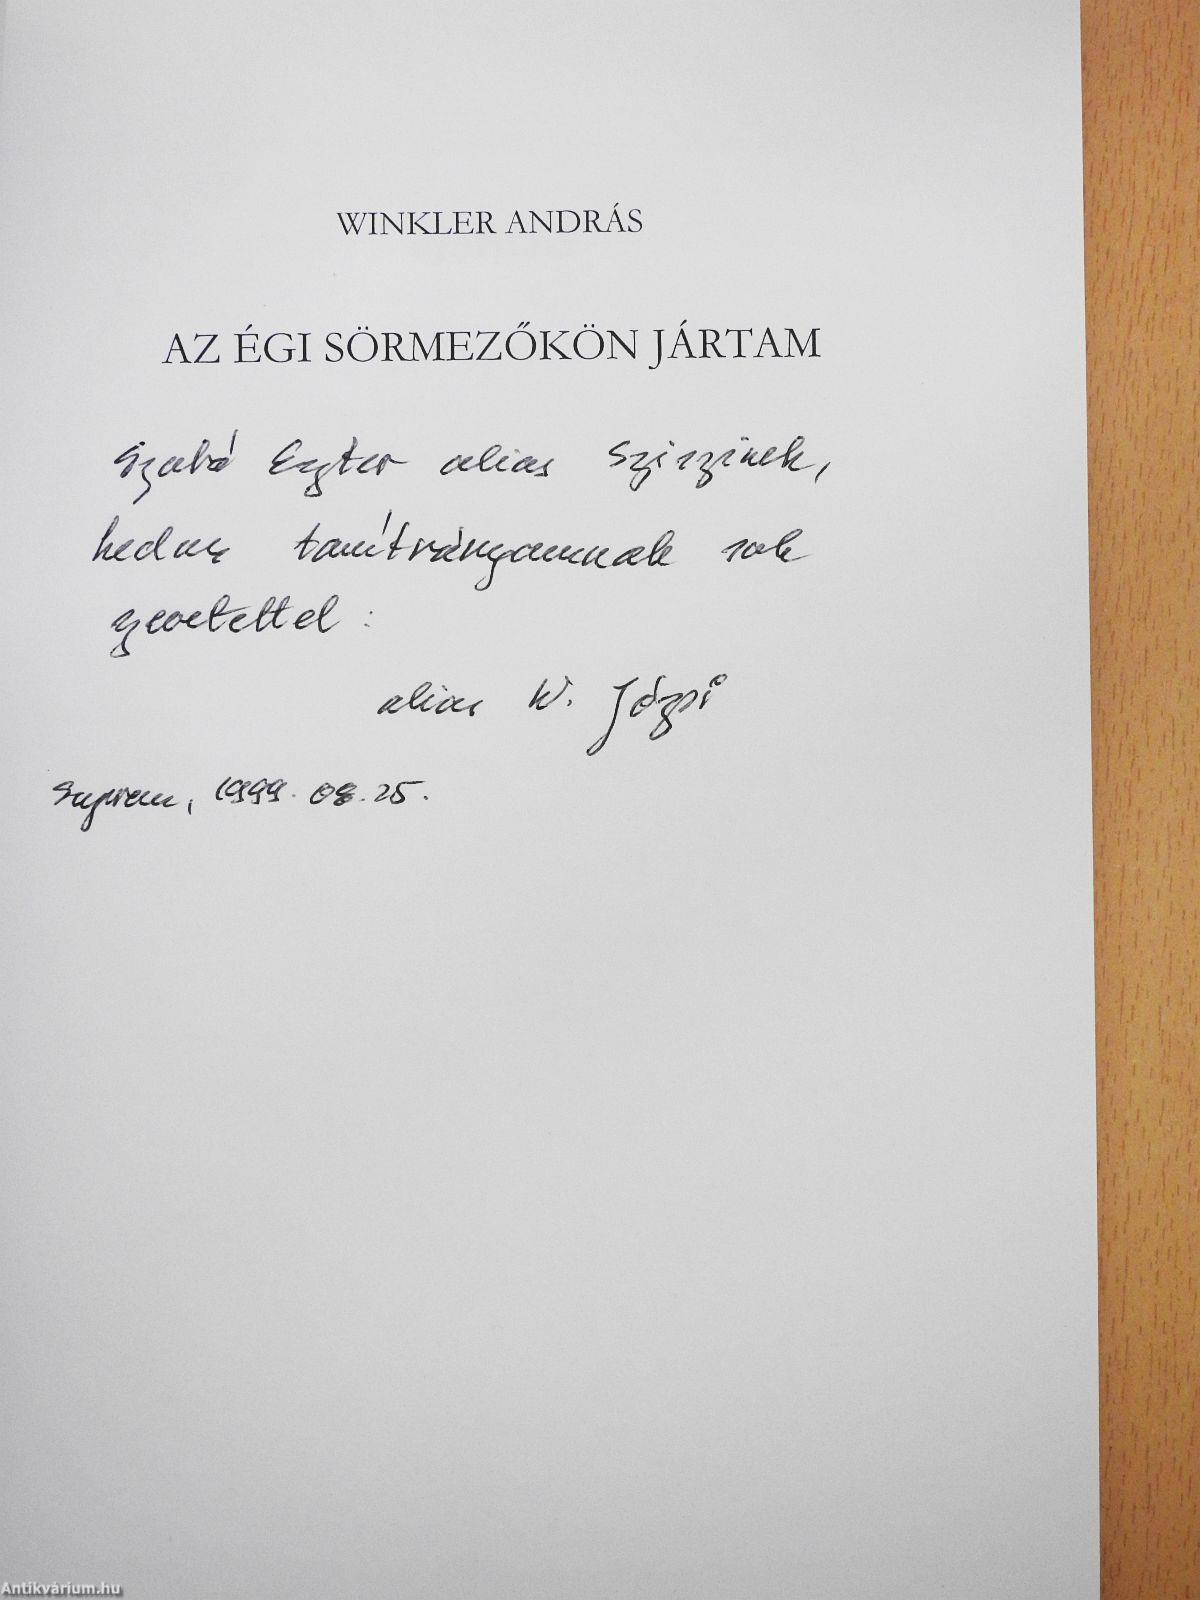 WINKLER ANDRÁS
AZ ÉGI SÖRMEZŐKÖN JÁRTAM
Szabó Eszter alias Sziszinek,
kedves tanítványomnak sok
szeretettel:
alias W. Józsi
Sopron, 1999. 08. 25.
Antikvárium.hu